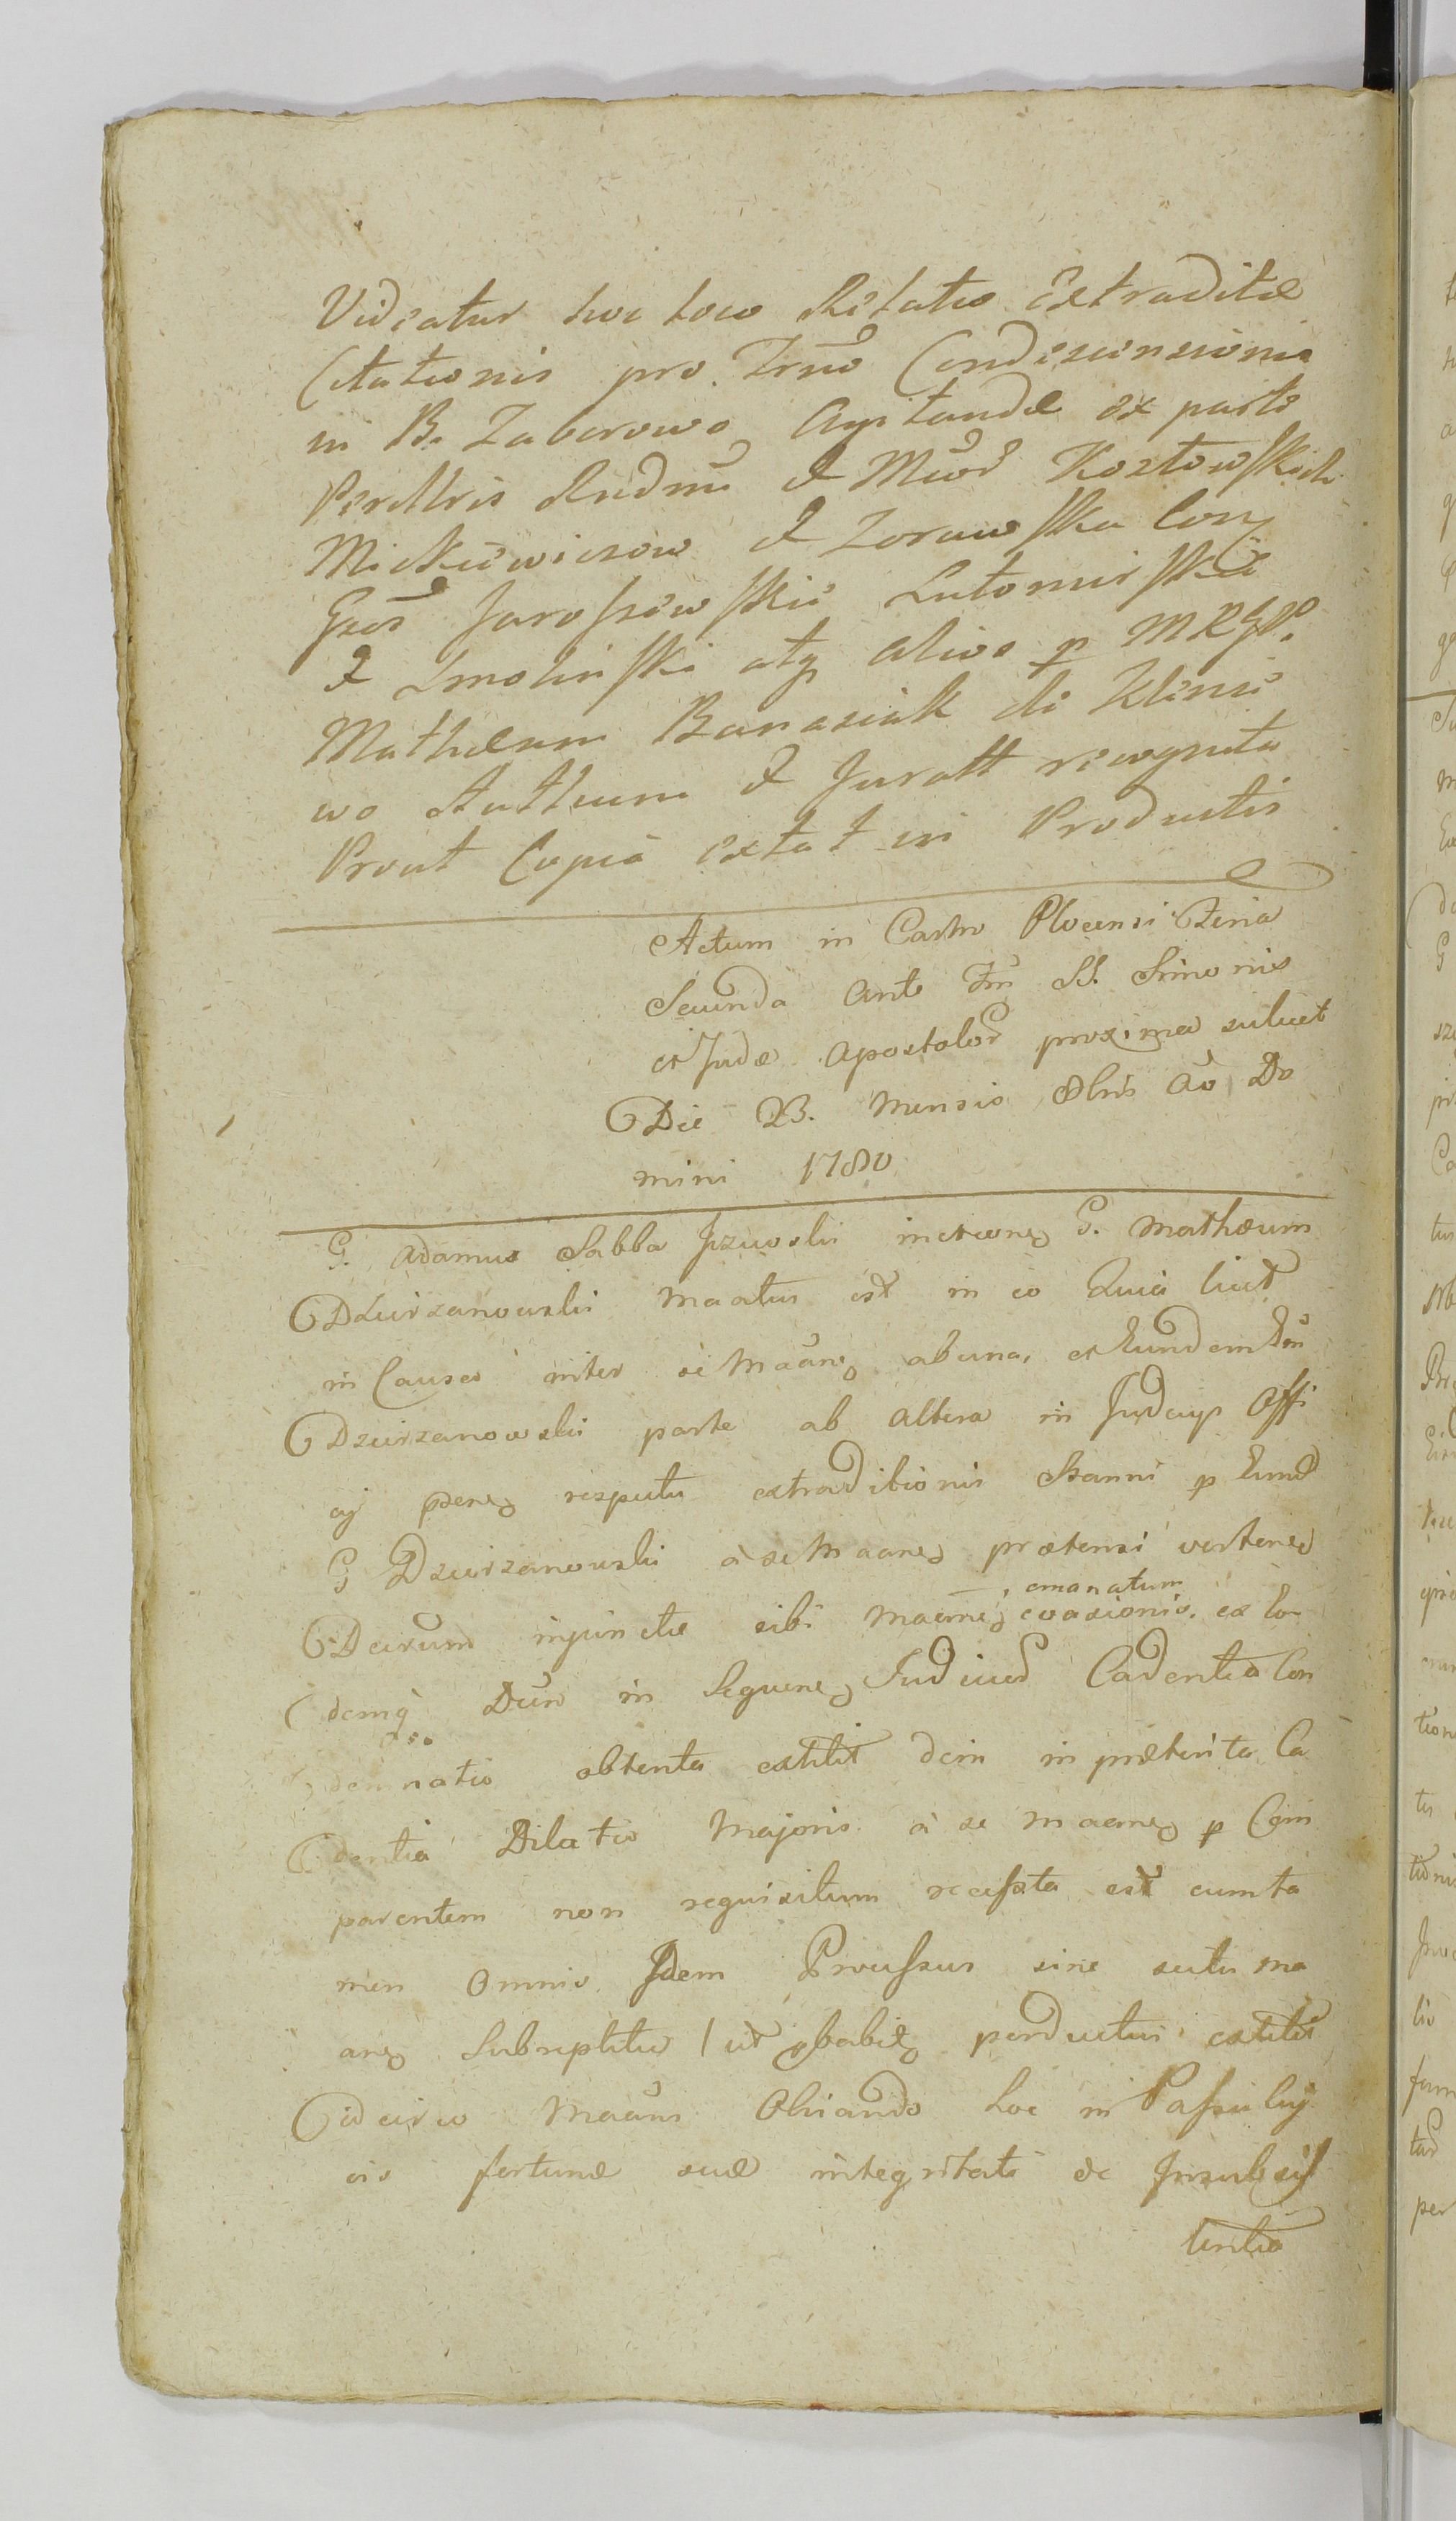 Videatur hoc loco Relatio Extraditæ
Citationis pro Trno Condescensionis
in B. Zaborowo Agitandæ ex parte
Perillris Rndmi & Mcoɤ Kozłowskich
Mickiewiczow & Zorawska Conj
Gsoɤ Jaroszewskie Lutomirskie
& Smolinski atq alios p MRGP.
Mathæum Banasiak de Klenie
wo Authum & Juratt recognita
Prout Copia extat in Productis
Actum in Castro Plocensi Feria
Secunda Ante Fm SS. Simonis
et Judæ Apostoloɤ proxima scilicet
Die 23. Mensis 8bris Ao Do
mini 1780
G. Adamus Sabba Jzwoski G. Mathæum
Dzierzanowski Maatus est in eo Quia licet
in Causa inter se Maane ab una, et Eundem Gm
Dzierzanowski parte ab altera in Judicijs Offi
cij respectu extraditionis Stanni p Eund
G Dzierzanowski a se Maane prætensi vertene
emanatum
Decretum injunctæ sibi Maane evasionis. ex eo
demq Dum in Sequene Judicioɤ Cadentia Con
demnatio obtenta extitit dein in præterita Ca
dentia Dilatio Majoris a se maane p Com
parentem non requisitum recepta est cum ta
men omnis Idem Processus sine scitu ma
ane Subreptitie / ut pbabit perductus extitit
idcirco Maans Obviando hoc in Passu Cuj
vis fortunæ suæ integritati ac Insubsis
tentia